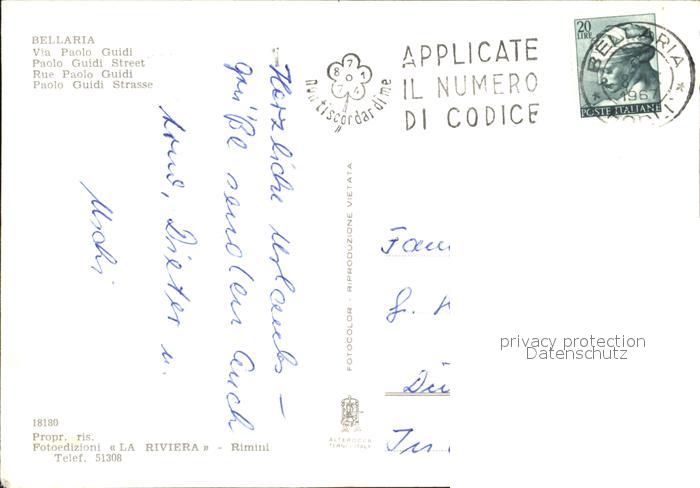 BELLARIA
Via Paolo Guidi
Paolo Guidi Street
Rue Paolo Guidi
Paolo Guidi Strasse
nontiscordardime
APPLICATE
IL NUMERO
DI CODICE
20
LIRE
POSTE ITALIANE
BELLARIA
1967
Herzliche Urlaubs-
grüße senden Euch
Dieter u.
Uschi
FOTOCOLOR - RIPRODUZIONE VIETATA
Fam
G.
Dü
privacy protection
Datenschutz
ALTEROCCA
TERNI ITALY
18180
Propr. ris.
Fotoedizioni « LA RIVIERA » - Rimini
Telef. 51308